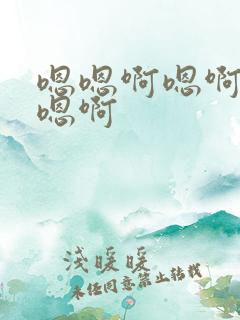 嗯嗯啊嗯啊
嗯啊
浅暖暖
未经同意禁止转载